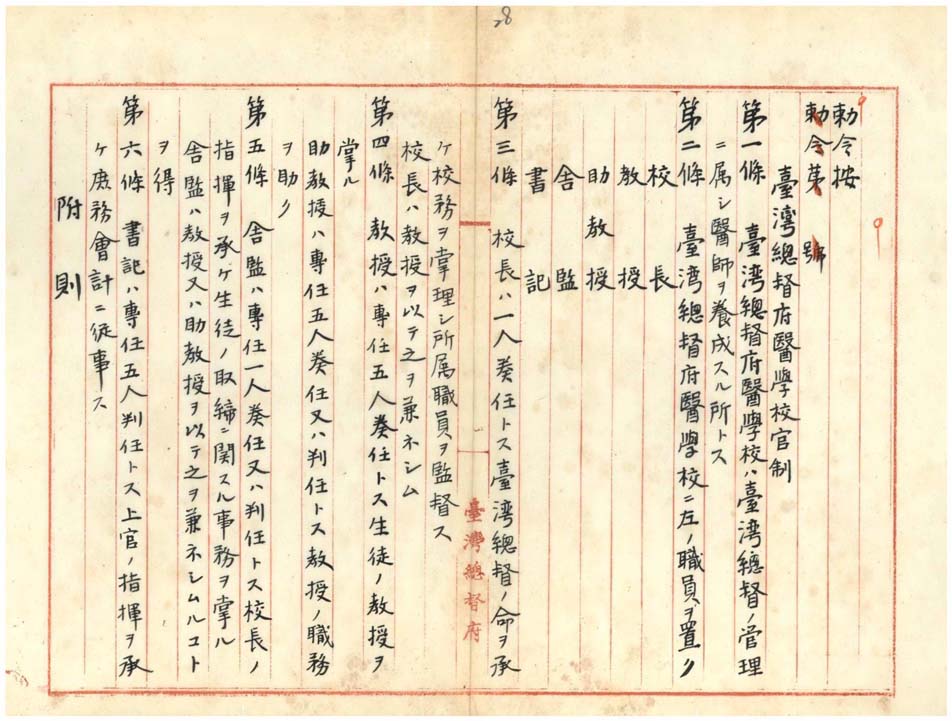 28
勅令按
勅令第 號
臺灣總督府醫學校官制
第一條 臺灣總督府醫學校ハ臺灣總督ノ管理
ニ属シ醫師ヲ養成スル所トス
第二條 臺灣總督府醫學校ニ左ノ職員ヲ置ク
校長
教授
助教授
舎監
書記
第三條 校長ハ一人奏任トス臺灣總督ノ命ヲ承
ケ校務ヲ掌理シ所属職員ヲ監督ス
校長ハ教授ヲ以テ之ヲ兼ネシム
第四條 教授ハ專任五人奏任トス生徒ノ教授ヲ
掌ル
助教授ハ專任五人奏任又ハ判任トス教授ノ職務
ヲ助ク
第五條 舎監ハ專任一人奏任又ハ判任トス校長ノ
指揮ヲ承ケ生徒ノ取締ニ関スル事務ヲ掌ル
舎監ハ教授又ハ助教授ヲ以テ之ヲ兼ネシムルコト
ヲ得
第六條 書記ハ專任五人判任トス上官ノ指揮ヲ承
ケ庶務會計ニ従事ス
附則
臺灣總督府